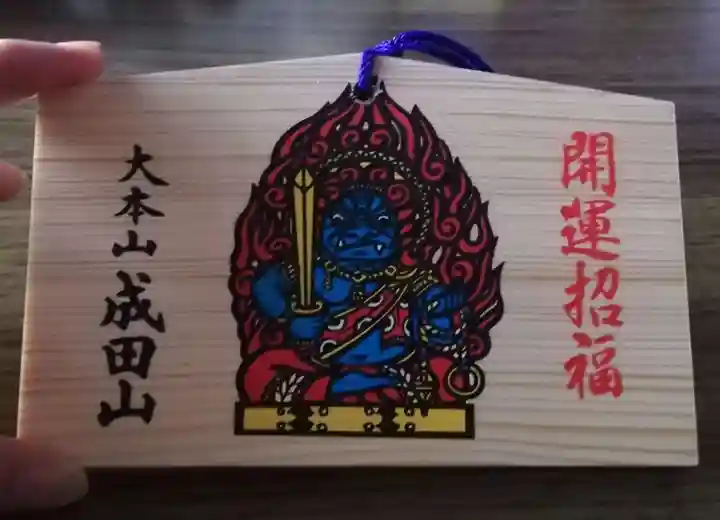 開運招福
大本山成田山